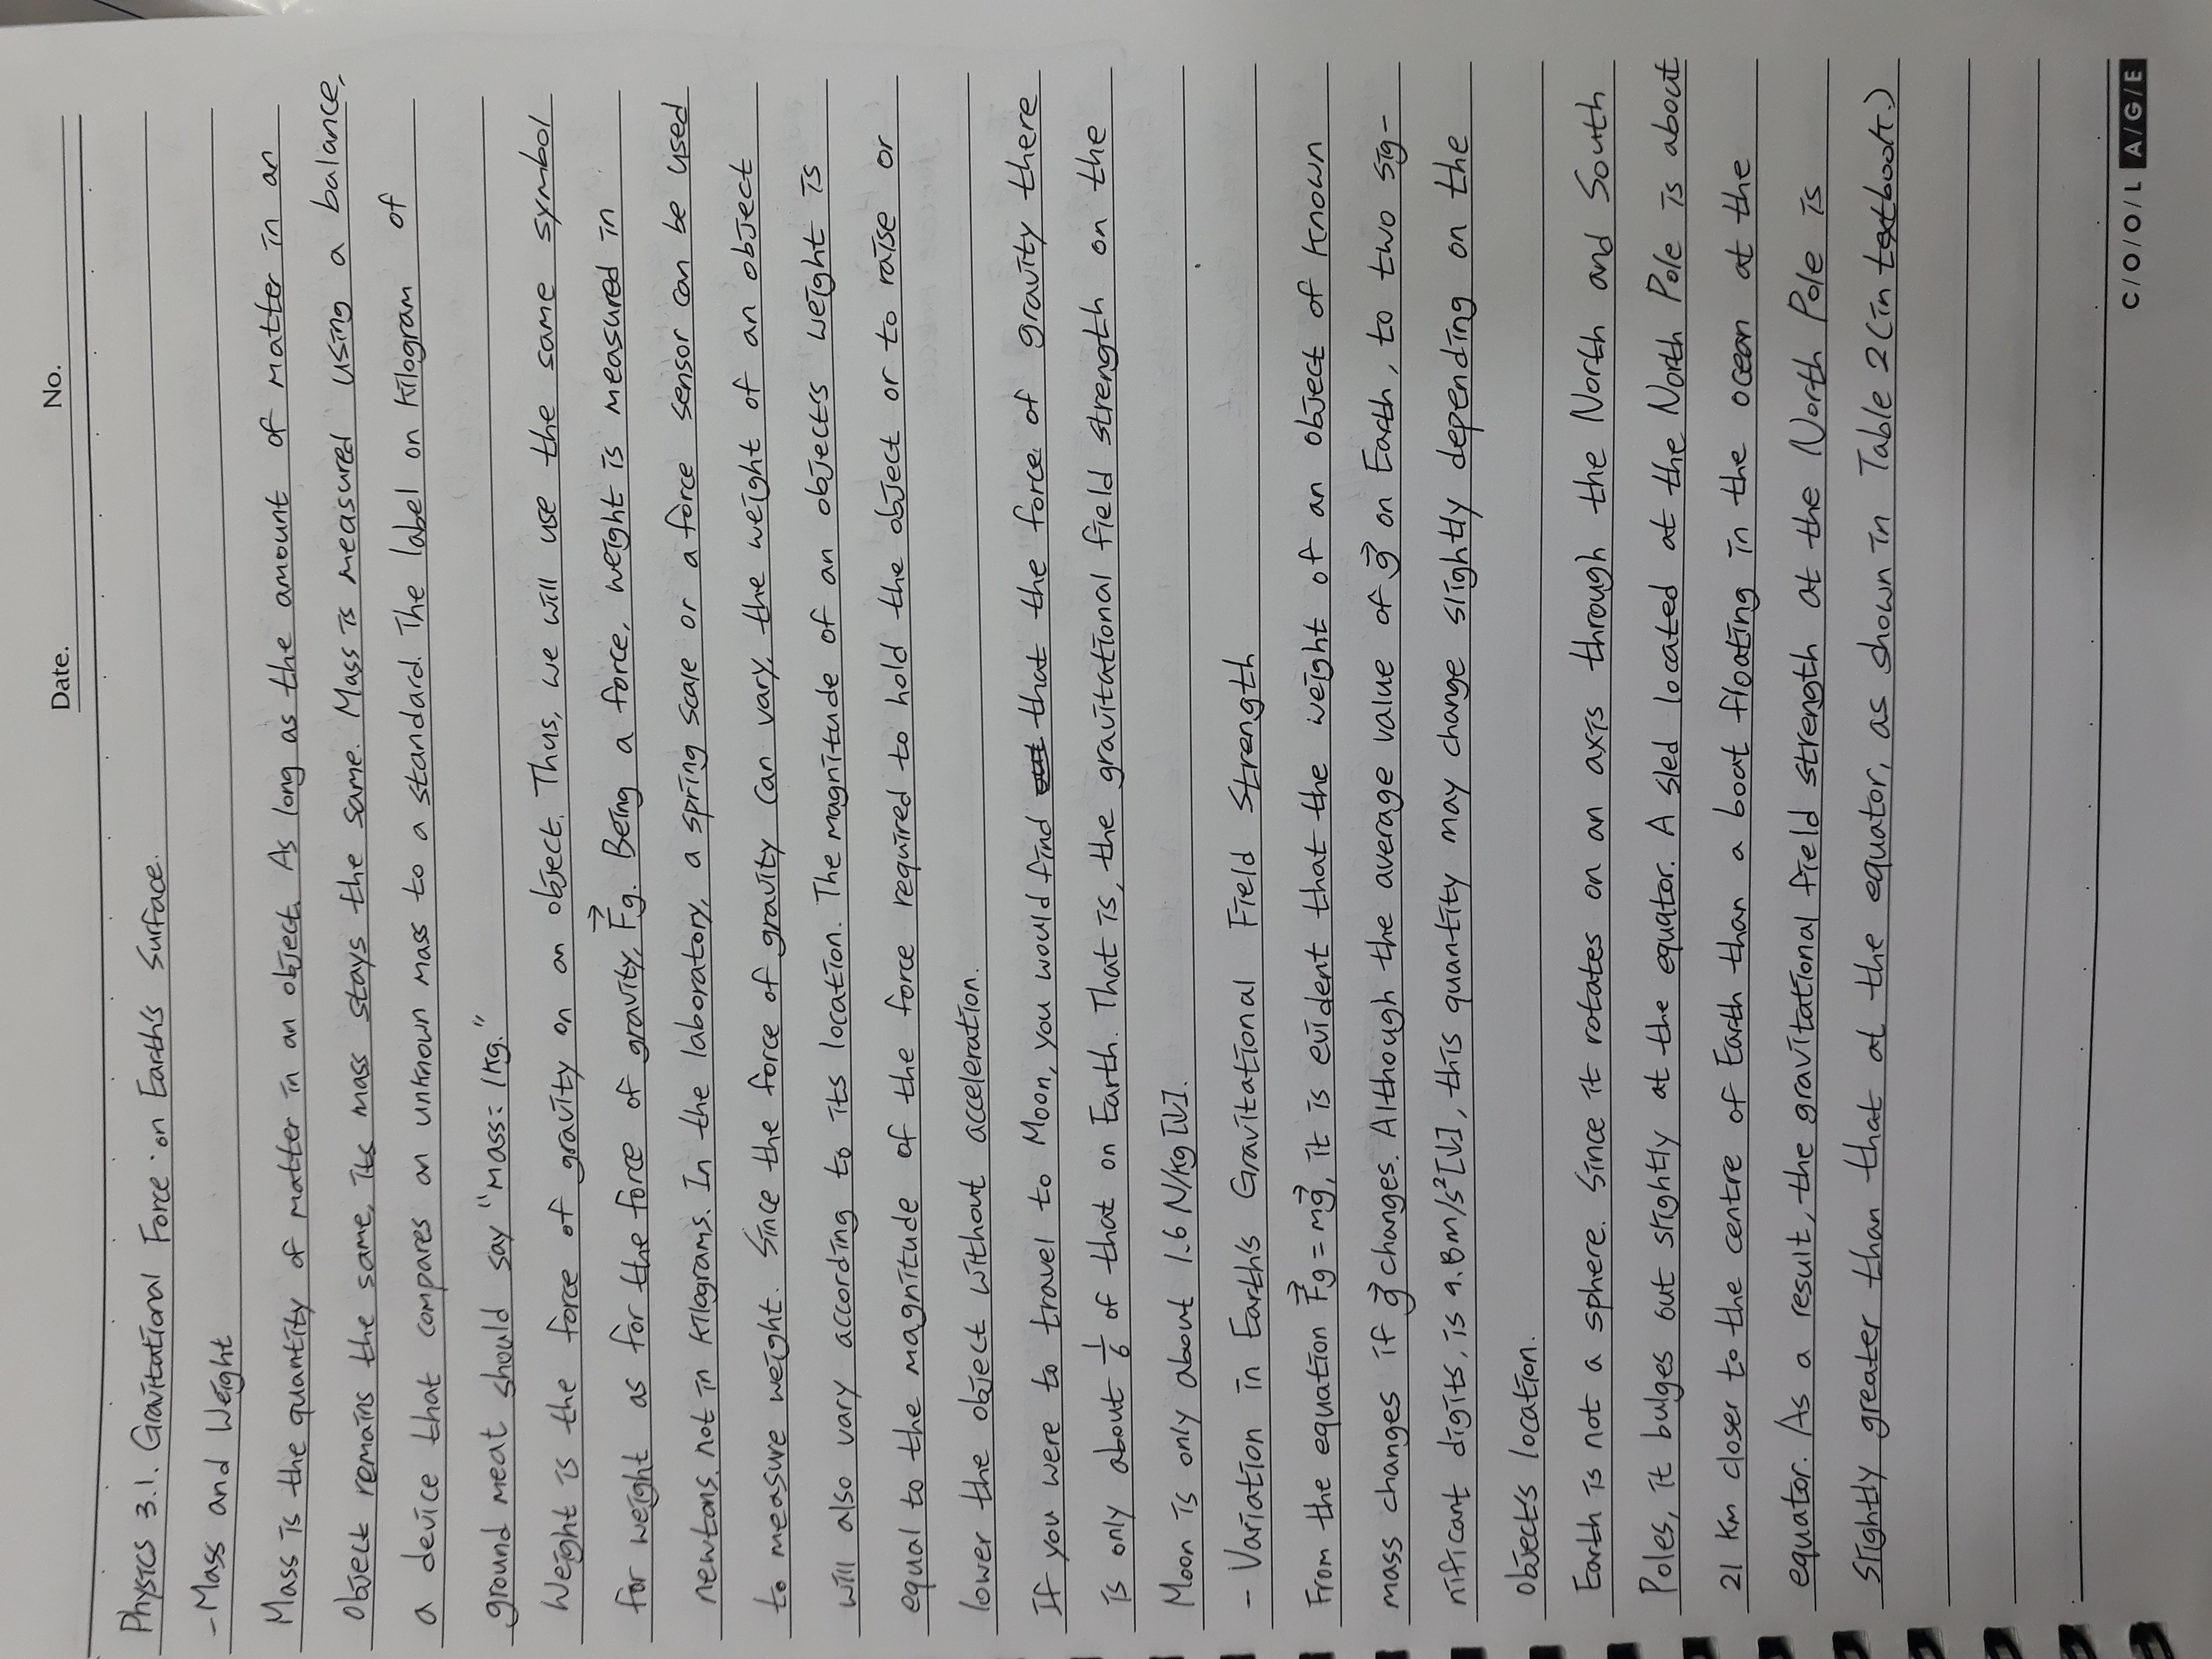 Date. No.
Physics 3.1. Gravitational Force on Earth's Surface.
- Mass and Weight
Mass is the quantity of matter in an object. As long as the amount of matter in an
object remains the same, its mass stays the same. Mass is measured using a balance,
a device that compares an unknown mass to a standard. The label on kilogram of
ground meat should say "mass: 1kg."
Weight is the force of gravity on an object. Thus, we will use the same symbol
for weight as for the force of gravity, F⃗g. Being a force, weight is measured in
newtons, not in kilograms. In the laboratory, a spring scale or a force sensor can be used
to measure weight. Since the force of gravity can vary, the weight of an object
will also vary according to its location. The magnitude of an object's weight is
equal to the magnitude of the force required to hold the object or to raise or
lower the object without acceleration.
If you were to travel to Moon, you would find that the force of gravity there
is only about 1/6 of that on Earth. That is, the gravitational field strength on the
Moon is only about 1.6 N/kg[↓].
- Variation in Earth's Gravitational Field Strength
From the equation F⃗g = mg⃗, it is evident that the weight of an object of known
mass changes if g⃗ changes. Although the average value of g⃗ on Earth, to two sig-
nificant digits, is 9.8m/s²[↓], this quantity may change slightly depending on the
object's location.
Earth is not a sphere. Since it rotates on an axis through the North and South
Poles, it bulges out slightly at the equator. A sled located at the North Pole is about
21 km closer to the centre of Earth than a boat floating in the ocean at the
equator. As a result, the gravitational field strength at the North Pole is
slightly greater than that at the equator, as shown in Table 2 (in textbook.)
C/O/O/L A/G/E